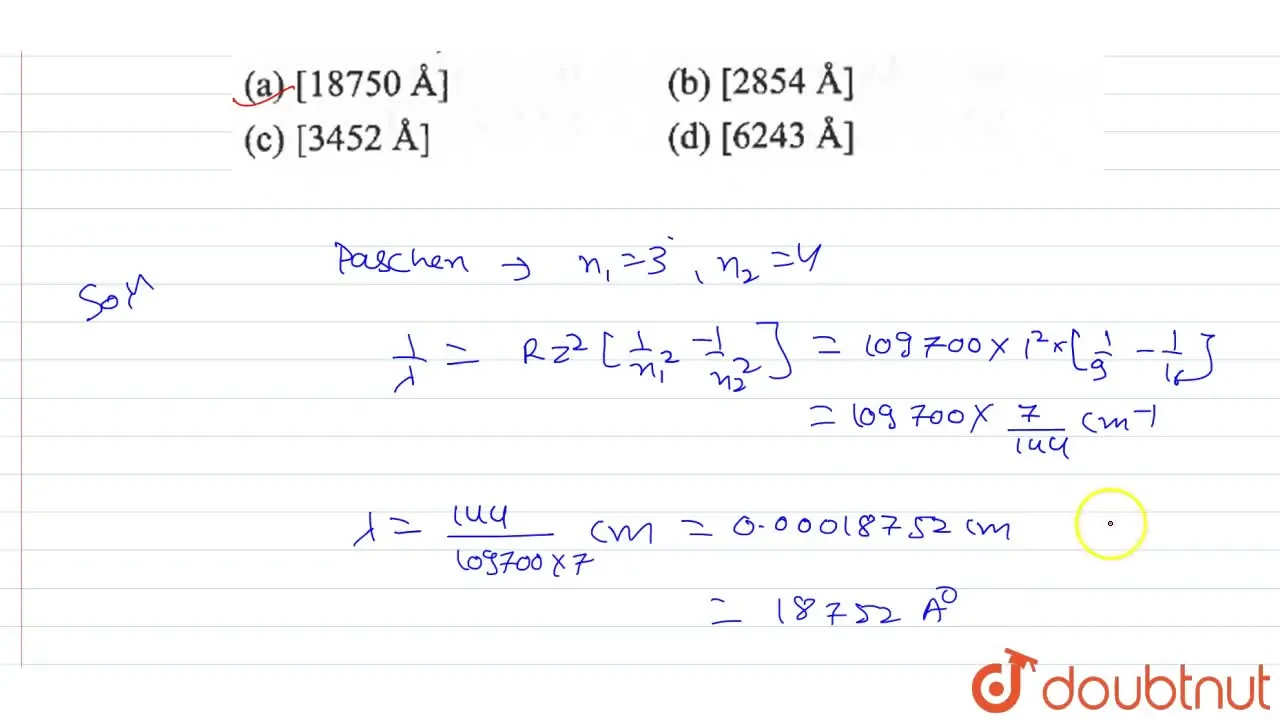 (a) [18750 Å] (b) [2854 Å]
(c) [3452 Å] (d) [6243 Å]
Paschen → n₁ = 3, n₂ = 4
Solⁿ
1/λ = RZ² [1/n₁² - 1/n₂²] = 109700 × 1² × [1/9 - 1/16]
= 109700 × 7/144 cm⁻¹
λ = 144/109700×7 cm = 0.00018752 cm
= 18752 A⁰
doubtnut